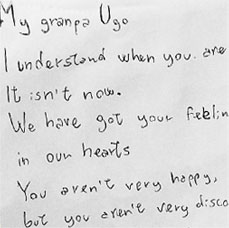 My granpa Ugo
I understand when you are
It isn't now.
We have got your feelin
in our hearts
You aren't very happy,
but you aren't very disco